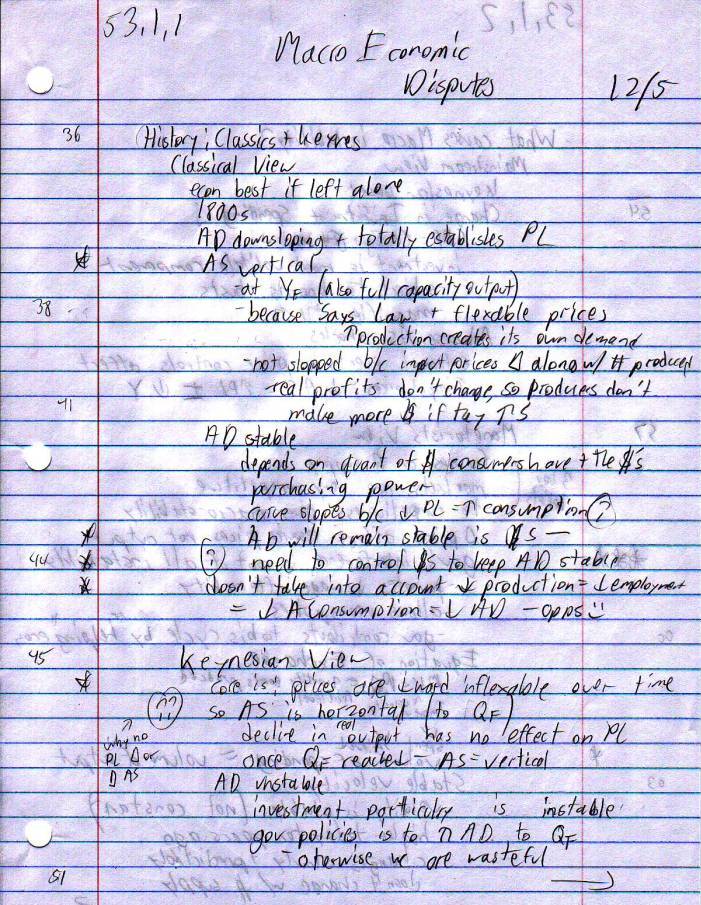 53,1,1
Macro Economic
Disputes 12/5
36 History; Classics + keynes
Classical View
econ best if left alone
1800s
AD downsloping + totally establisles PL
* AS vertical
-at YF (also full capacity output)
38 -because Says Law + flexable prices
↑production creates its own demand
-not slopped b/c input prices Δ along w/ # produced
real profits don't change, so producers don't
41 make more $ if tay ↑ S
AD stable
depends on quant of $ consumers have + the $'s
purchasing power
curve slopes b/c ↓ PL = ↑ consumption ?
* AD will remain stable is $S —
44 * ? need to control $S to keep AD stable
* doesn't take into account ↓ production = ↓ employment
= ↓ A Consumption = ↓ AD - opps
45 Keynesian View
* core is; prices are ↓ward inflexable over time
?? so AS is horzontal (to QF)
decline in real output has no effect on PL
why no PL Δ or Δ AS
once QF reached AS = vertical
AD unstable
investment particulry is instable
gov policies is to ↑ AD to QF
- otherwise we are wasteful
51 →